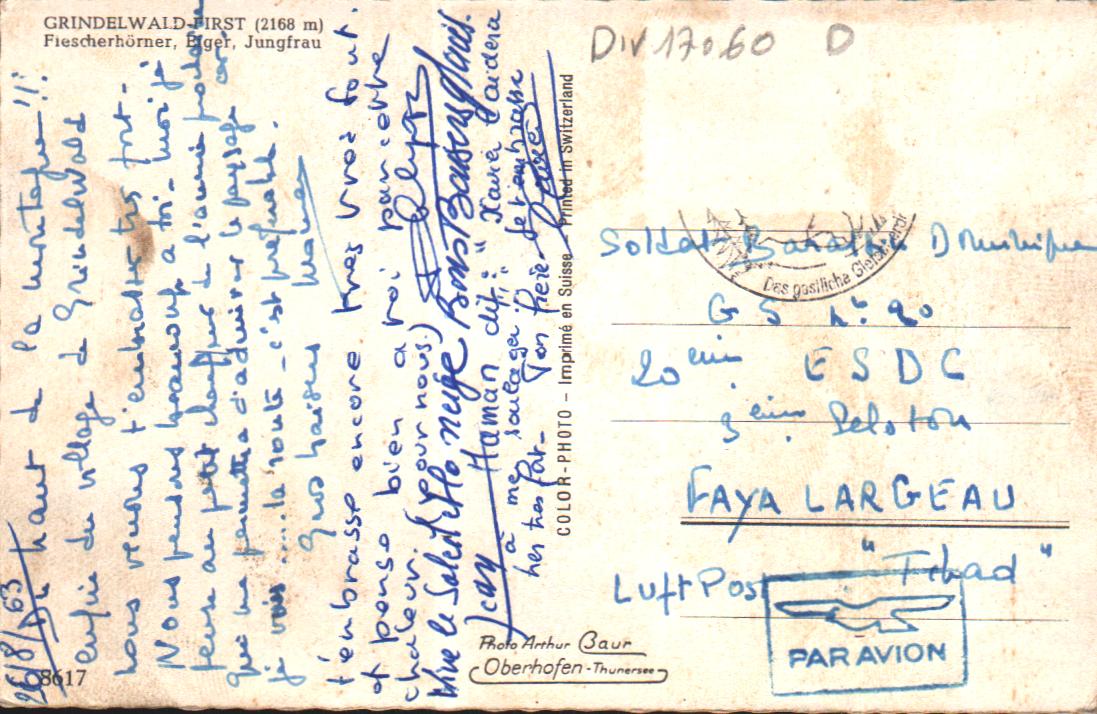 GRINDELWALD-FIRST (2168 m)
Fiescherhörner, Eiger, Jungfrau
26/8/63
Du haut de la montagne !!!
enfin du village de Grindelwald
nous venons t'embrasser très fort-
Nous pensons beaucoup à toi- moi je
pense au petit chauffeur de l'année prochaine
qui me permettra d'admirer le paysage car
je vois ..... la route - c'est préférable.
Gros baisers Maman
t'embrasse encore très très fort.
et pense bien à toi par cette
chaleur. (pour nous.)
Vive le soleil et la neige Bons Baisers
Jean
Maman dit: " Xavier t'aidera
à me soulager " Ton frère qui t'embrasse
très fort- Xavier
COLOR-PHOTO – Imprimé en Suisse Printed in Switzerland
8617
Photo Arthur Baur
Oberhofen-Thunersee
DIV 17060 D
Das gastliche Gletscherdorf
Soldat Dominique
G S n° 90
20ème E S D C
3ème Peloton
FAYA LARGEAU
" Tchad "
Luft Post
PAR AVION